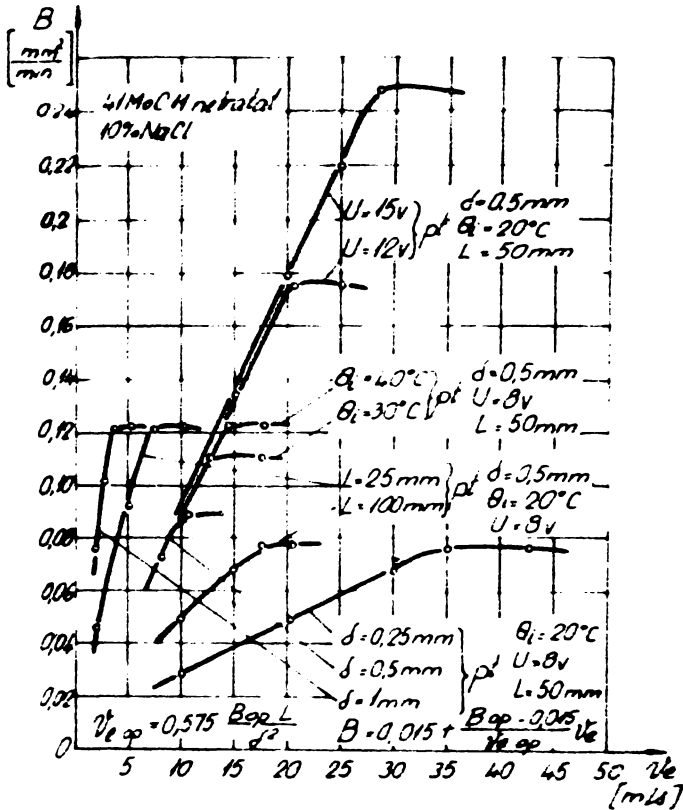 B
[mm²/min]
41MoCH netratat
10% NaCl
0,24
0,22
0,2
0,18
0,16
0,14
0,12
0,10
0,08
0,06
0,04
0,02
0
U=15v
U=12v
pt
d=0.5mm
θi=20°C
L=50mm
θi=40°C
θi=30°C
pt
d=0,5mm
U=8v
L=50mm
L=25mm
L=100mm
pt
d=0,5mm
θi=20°C
U=8v
d=0,25mm
d=0,5mm
d=1mm
pt
θi=20°C
U=8v
L=50mm
Ve op = 0,575 Bop L / d²
B = 0,015 + (Bop - 0,015) / Ve op Ve
5 10 15 20 25 30 35 40 45 50 Ve
[m/s]